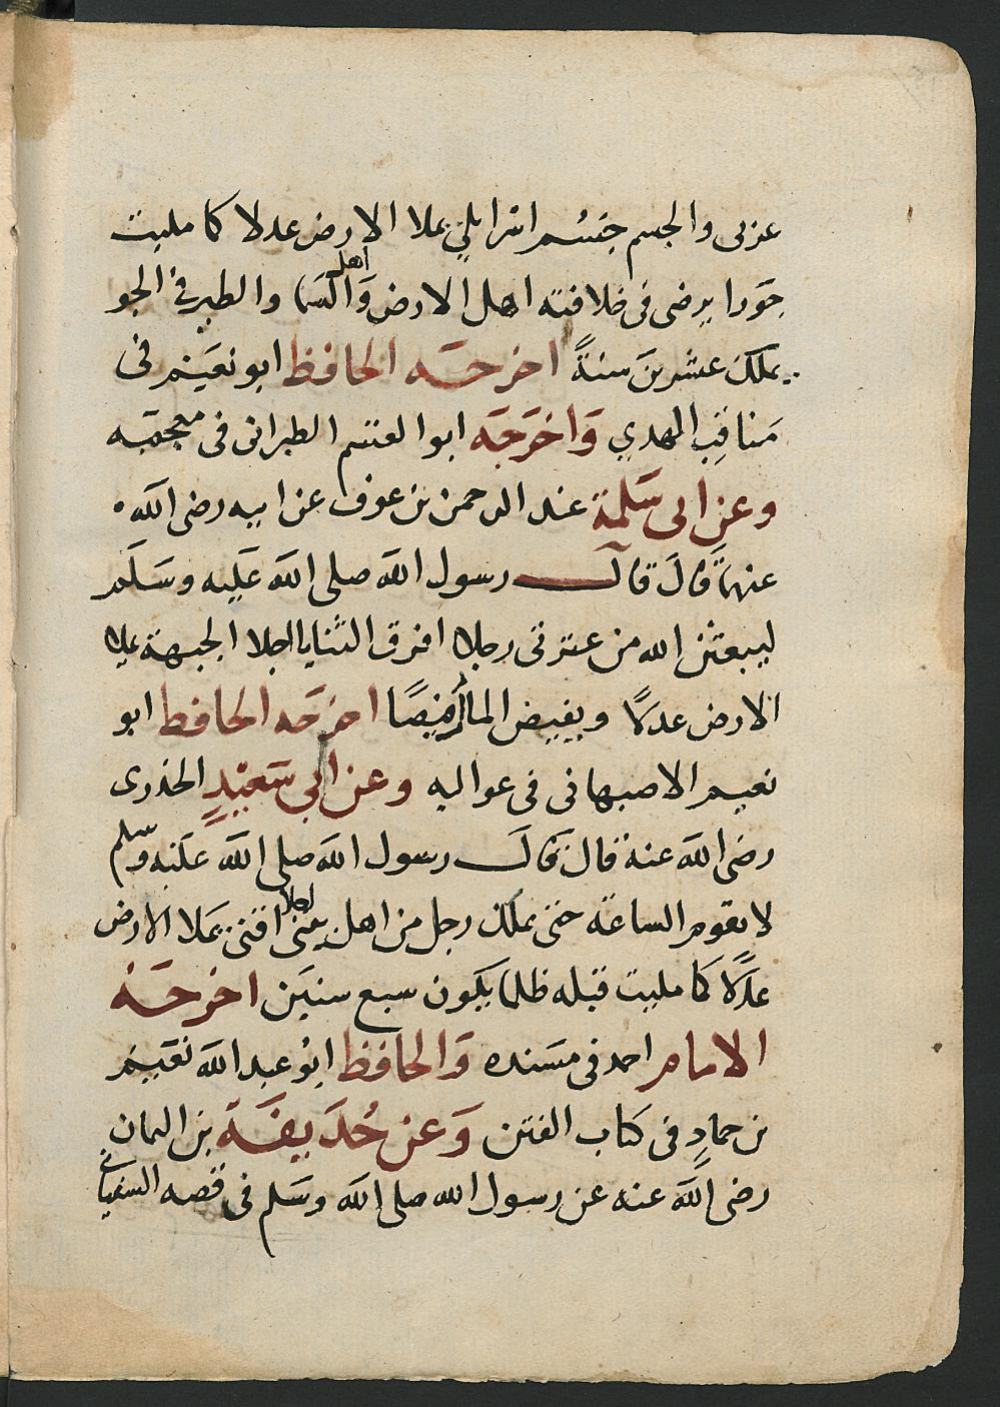 عربى والجسم جسم اسرايلي يملا الارض عدلا كما مليت
جورا يرضى فى خلافته اهل الارض واهل السما والطير في الجو
يملك عشرين سنة اخرجه الحافظ ابو نعيم فى
مناقب المهدي واخرجه ابوا القسم الطبرانى فى معجمه
وعن ابى سلمة عبد الرحمن بن عوف عن ابيه رضى الله
عنهما قال قال رسول الله صلى الله عليه وسلم
ليبعثن الله من عترتى رجلا افرق الثنايا اجلا الجبهة يملا
الارض عدلا ويفيض المال فيضا اخرجه الحافظ ابو
نعيم الاصبهانى فى عواليه وعن ابي سعيد الخدرى
رضى الله عنه قال قال رسول الله صلى الله عليه وسلم
لا تقوم الساعة حتى يملك رجل من اهل بيتى اجلا اقنى يملا الارض
عدلا كما مليت قبله ظلما يكون سبع سنين اخرجه
الامام احمد فى مسنده والحافظ ابو عبد الله نعيم
بن حماد فى كتاب الفتن وعن حذيفة بن اليمان
رضى الله عنه عن رسول الله صلى الله وسلم فى قصه السفيانى